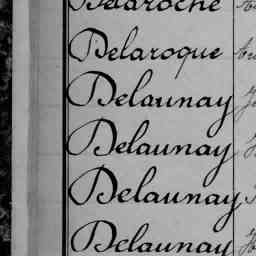 Delaroche
Delaroque
Delaunay
Delaunay
Delaunay
Delaunay